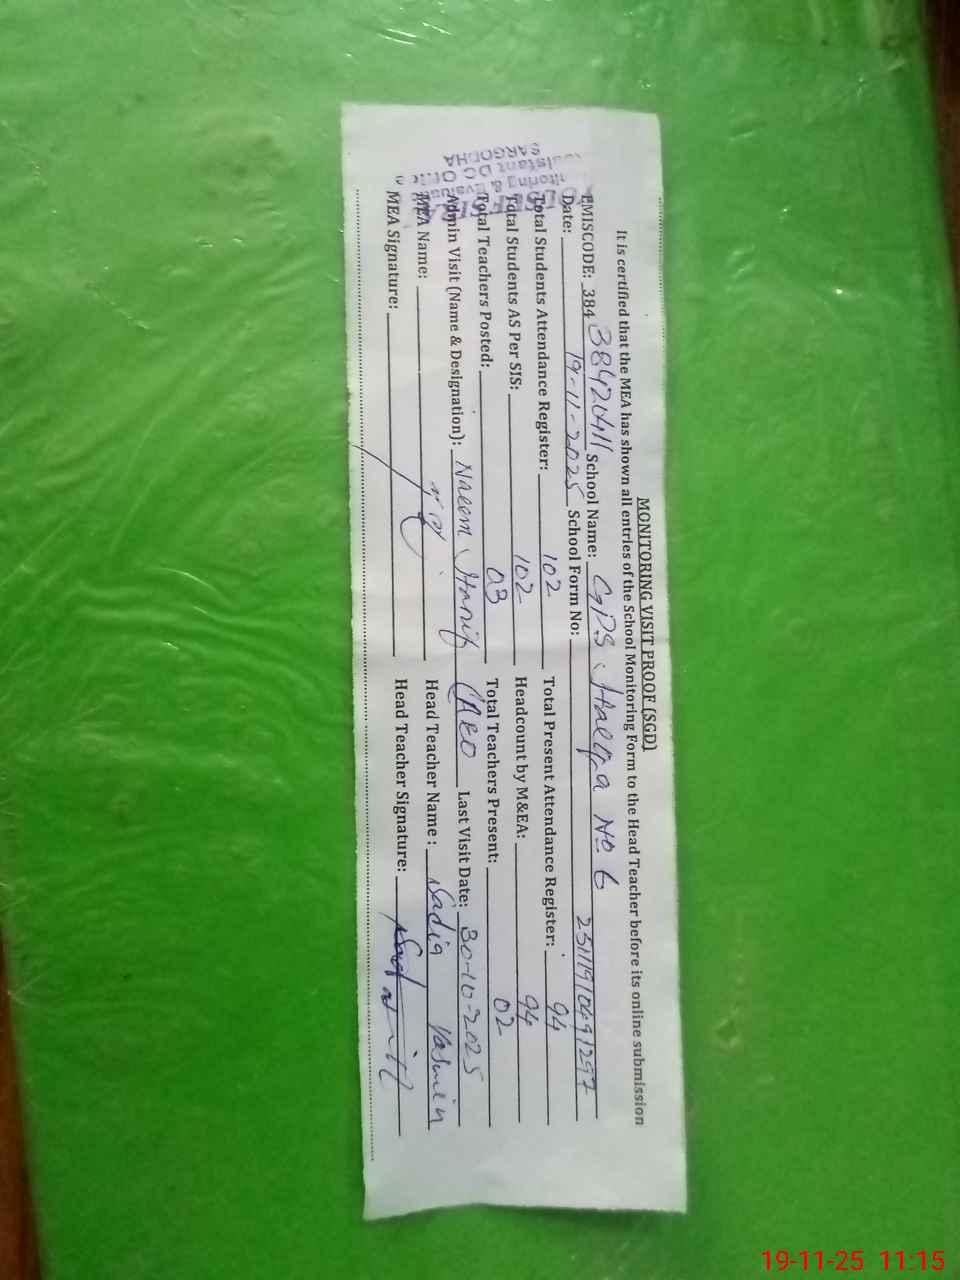 MONITORING VISIT PROOF (SGD)
It is certified that the MEA has shown all entries of the School Monitoring Form to the Head Teacher before its online submission
EMISCODE: 384 38420411 School Name: GPS No 6
Date: 19-11-2025 School Form No: 2311910691297
Total Students Attendance Register: 102 Total Present Attendance Register: 94
Total Students AS Per SIS: 102 Headcount by M&EA: 94
Total Teachers Posted: 03 Total Teachers Present: 02
Admin Visit (Name & Designation): Naeem Hanif (AEO Last Visit Date: 30-10-2025
MEA Name: Head Teacher Name: Sadia Yasmin
MEA Signature: Head Teacher Signature:
SARGODHA
19-11-25 11:15